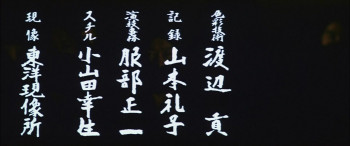 色彩技術 渡辺貢
記録 山本礼子
演技事務 服部正一
スチル 小山田幸生
現像 東洋現像所